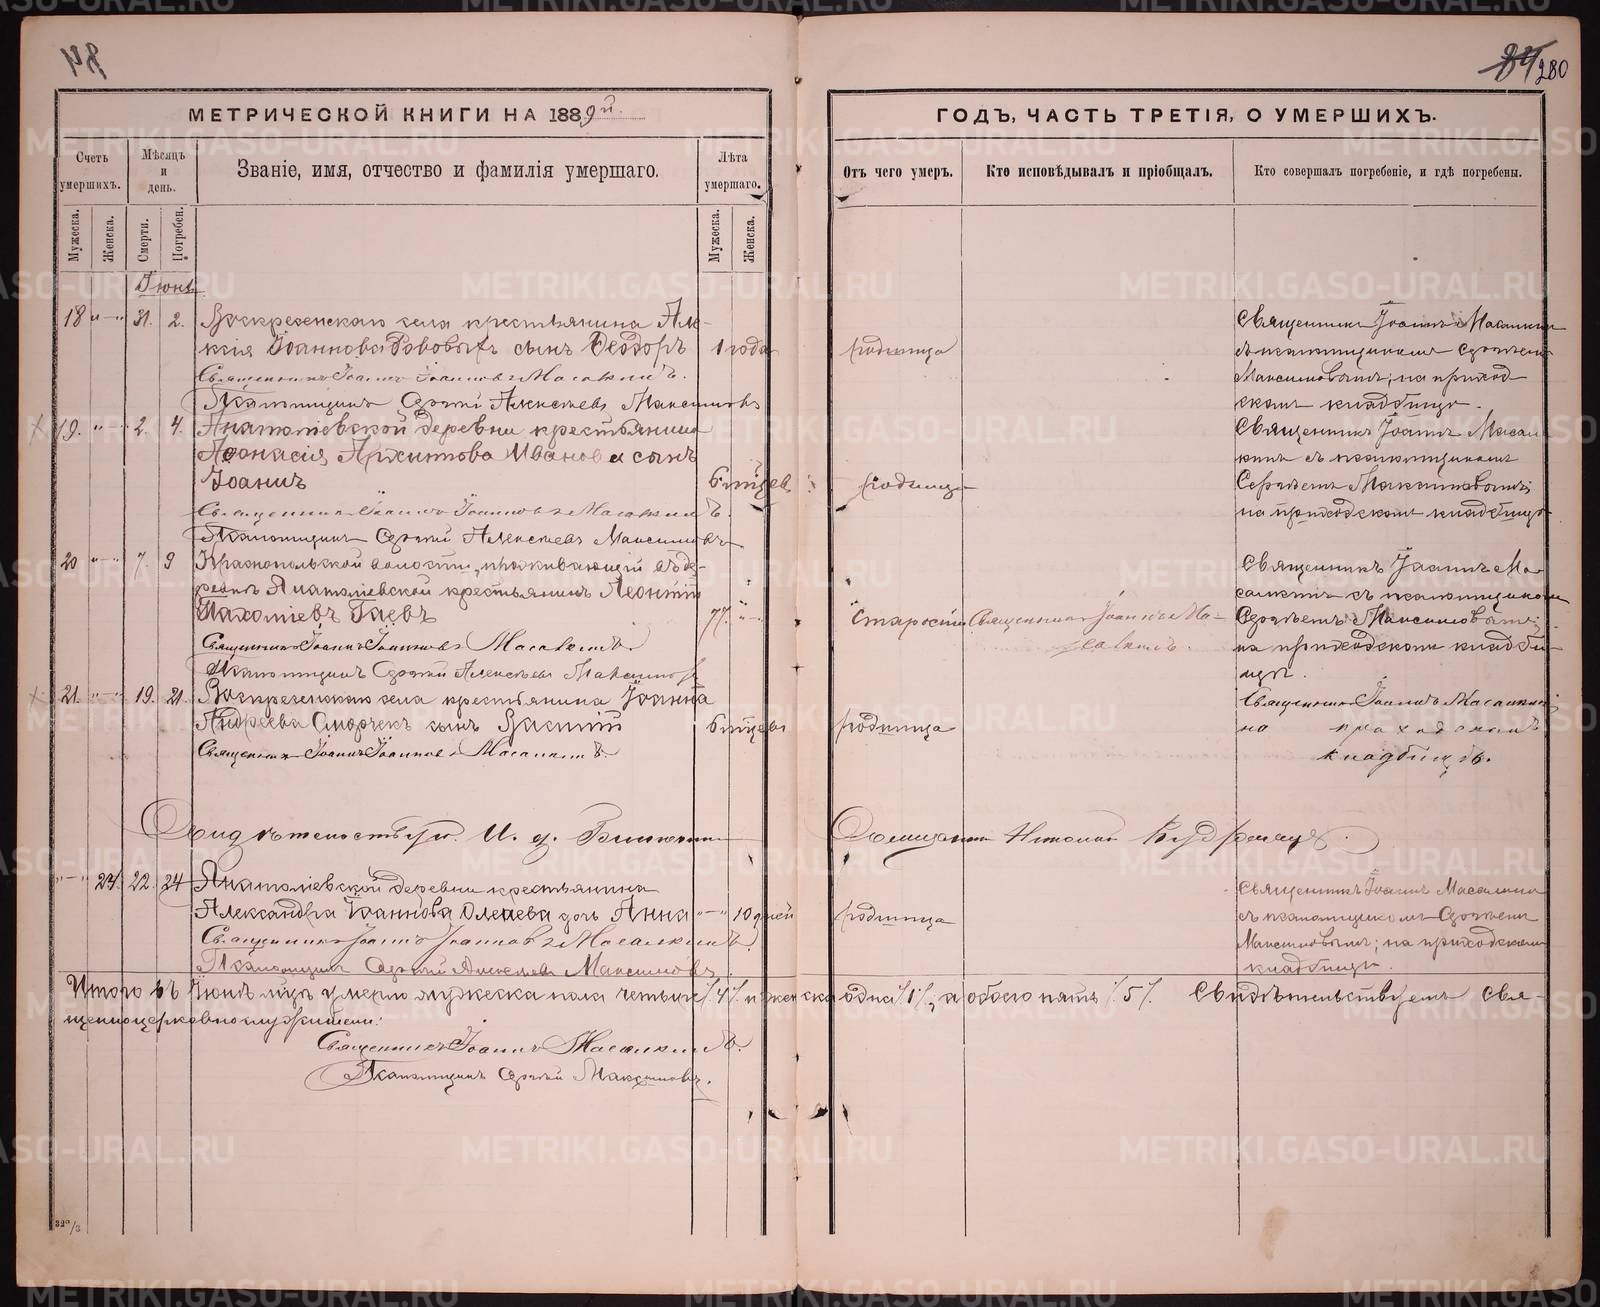 84
84 280
МЕТРИЧЕСКОЙ КНИГИ НА 1889й
ГОДЪ, ЧАСТЬ ТРЕТІЯ, О УМЕРШИХЪ.
Счетъ умершихъ.
Мѣсяцъ и день.
Званіе, имя, отчество и фамилія умершаго.
Лѣта умершаго.
Отъ чего умеръ.
Кто исповѣдывалъ и пріобщалъ.
Кто совершалъ погребеніе, и гдѣ погребены.
Мужеска.
Женска.
Смерти.
Погребен.
Мужеска.
Женска.
Іюнь
18 „—„ 31. 2. Воскресенскаго села крестьянина Але-
ксія Іоаннова сынъ Ѳеодоръ 1 года родимца
Священникъ Іоаннъ Іоанновъ Масалкинъ.
Псаломщикъ Сергѣй Алексѣевъ Максимовъ
Священникъ Іоаннъ Масалкинъ
съ псаломщикомъ Сергѣемъ
Максимовымъ; на приход
скомъ кладбищѣ.
19. „—„ 2. 4. Анатоліевской деревни крестьянина
Аѳонасія Архиппова Иванова сынъ
Іоаннъ 6 мѣсяцев родимца
Священникъ Іоаннъ Іоанновъ Масалкинъ.
Псаломщикъ Сергѣй Алексѣевъ Максимовъ
Священникъ Іоаннъ Масал
кинъ съ псаломщикомъ
Сергѣемъ Максимовымъ;
на приходскомъ кладбищѣ
20 „—„ 7. 9 Краснопольской волости, проживающій въ де-
ревнѣ Анатоліевской крестьянинъ Леонтій
Пахоміевъ Гаевъ 77. „—„ Старости Священникъ Іоаннъ Ма-
салкинъ.
Священникъ Іоаннъ Іоанновъ Масалкинъ
Псаломщикъ Сергѣй Алексѣевъ Максимовъ
Священникъ Іоаннъ Ма
салкинъ съ псаломщикомъ
Сергѣемъ Максимовымъ;
на приходскомъ кладби-
щѣ.
21. „—„ 19. 21. Воскресенскаго села крестьянина Іоанна
Андреева сынъ Василій 6 мѣсяцевъ родимца
Священникъ Іоаннъ Іоанновъ Масалкинъ.
Священникъ Іоаннъ Масалкинъ;
на приходскомъ
кладбищѣ.
Свидѣтельствую. И. д.
„—„ 24. 22. 24 Анатоліевской деревни крестьянина
Александра Іоаннова дочь Анна „—„ 10 дней родимца
Священникъ Іоаннъ Іоанновъ Масалкинъ.
Псаломщикъ Сергѣй Алексѣевъ Максимовъ.
Священникъ Іоаннъ Масалкинъ
съ псаломщикомъ Сергѣемъ
Максимовымъ; на приходскомъ
кладбищѣ.
Итого въ Іюнѣ м-цѣ умерло мужеска пола четыре /4/ и женска одна /1/, а обоего пять /5/. Свидѣтельствуемъ Свя-
щенноцерковнослужители:
Священникъ Іоаннъ Масалкинъ.
Псаломщикъ Сергѣй Максимовъ.
32а/3
METRIKI.GASO-URAL.RU